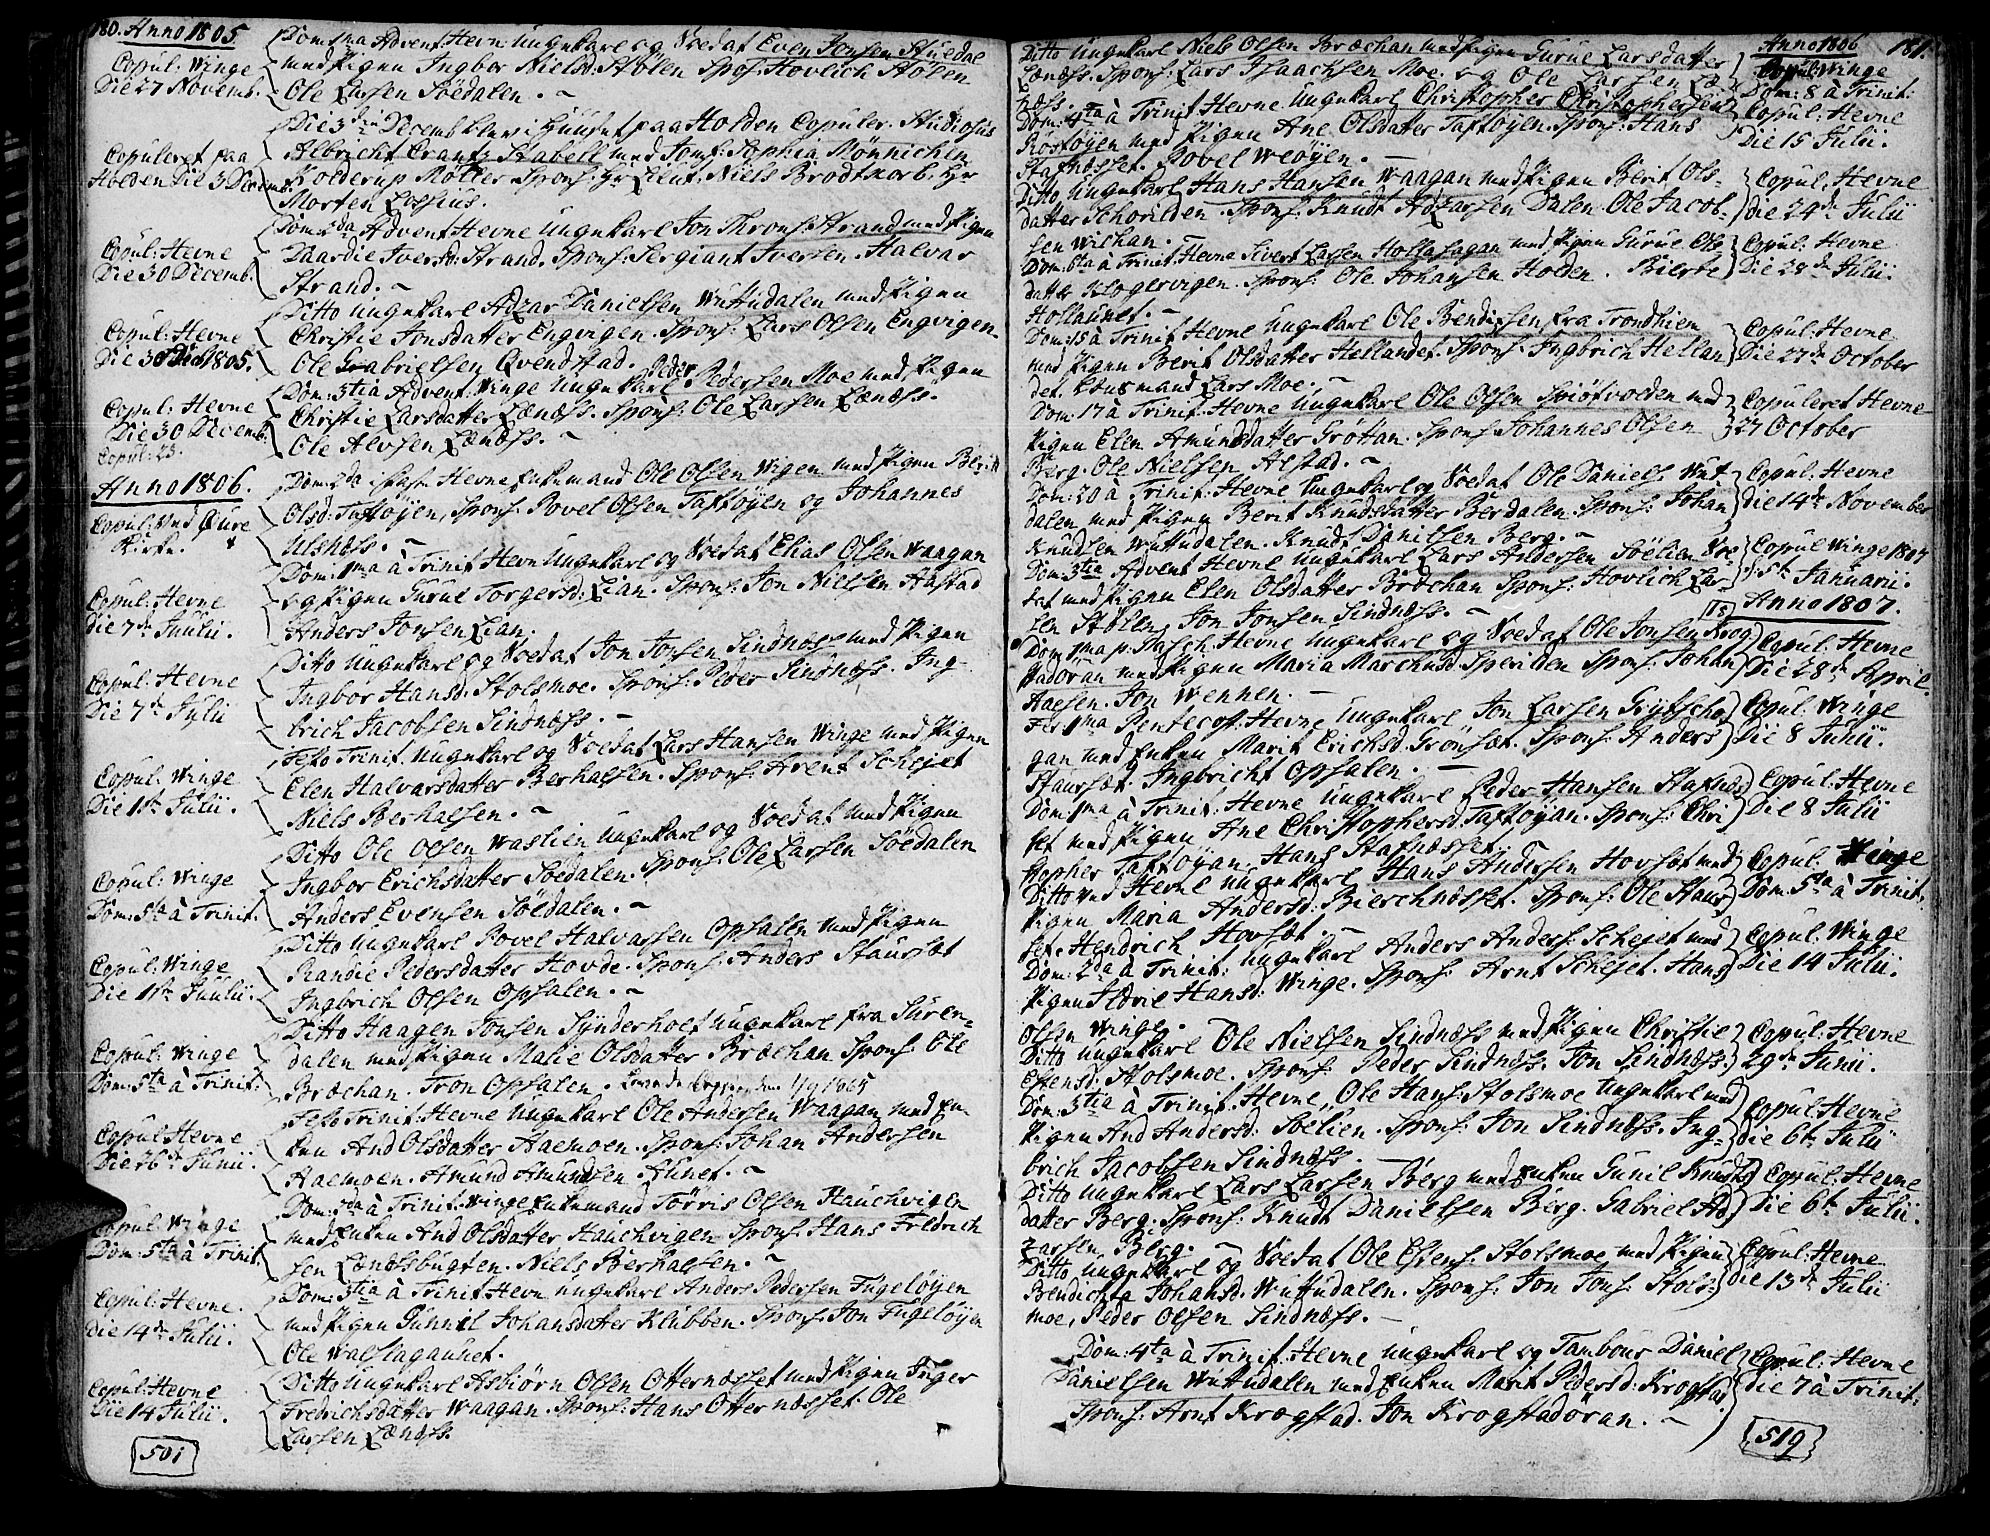 180. Anno 1805
Copul: Winge
Die 27 Novemb.
Dom: 1ma Advent: Hevn: Ungekarl og Soedat Even Jensen Stuedal
med Pigen Ingbor Nielsd: Stölen Spons: Hovlich Stölen
Ole Larsen Söedalen. ~
Copuleret paa
Holden Die 3 Decemb.
Die 3die Decemb. blev i Huuset paa Holden Copuler. Studiosus
Albricht Crantz Stabell med Jomf: Sophia Mönnichen
Kolderup Möller Spons: Hr Lieut: Niels Brodtkorb, Hr
Morten Lossius.
Copul: Hevne
Die 30 Decemb.
Dom: 2da Advent Hevne Ungekarl Jon Throns: Strand med Pigen
Paardie Iversd: Strand. Spons: Sergiant Iversen Halvar
Strand. ~
Copul: Hevne
Die 30 Decb 1805.
Ditto Ungekarl Adzar Danielsen Wuttudalen med Pigen
Christie Jonsdatter Engvigen. Spons: Lars Olsen Engvigen.
Ole Gabrielsen Qvendstad.
Copul: Hevne
Die 30 Decemb.
Copul: 23.
Dom: 3tia Advent: Winge Ungekarl Peder Pedersen Moe med Pigen
Christie Larsdatter Lændss. Spons: Ole Larsen Lændss.
Ole Alvsen Lændss. ~
Anno 1806.
Copul: Ved Öure
Kirke.
Dom: 2da i Fast: Hevne Enkemand Ole Olsen Wigen med Pigen Berit
Olsd: Taftöyen, Spons: Povel Olsen Taftöyen og Johannes
Ulsnæss. ~
Copul: Hevne
Die 7de Juulii.
Dom: 1ma à Trinit Hevn Ungekarl og Soedat Elias Olsen Waagan
og Pigen Gurue Torgersd: Lian. Spons: Jon Nielsen Hastad
Anders Jonsen Lian.
Copul: Hevne
Die 7de Julii
Ditto Ungekarl og Soedat Jon Jonsen Sindnæss med Pigen
Ingbor Hansd. Stolsmoe. Spons: Peder Sindnæss. Ing-
brich Jacobsen Sindnæss. ~
Copul: Winge
Die 1st Julii.
Festo Trinit. Ungekarl og Soedat Lars Hansen Winge med Pigen
Elen Halvarsdatter Berhaelsen. Spons: Arent Schejet
Niels Berhaelsen. ~
Copul: Winge
Dom: 5ta à Trinit.
Ditto Ole Olsen Waslien Ungekarl og Soedat med Pigen
Ingbor Erichsdatter Söedalen. Spons: Ole Larsen Söedalen
Anders Evensen Söedalen. ~
Copul: Winge
Die 1ste Juulii.
Ditto Ungekarl Povel Halvarsen Opsalen med Pigen
Randie Pedersdatter Hovde. Spons: Anders Staursæt
Ingbrich Olsen Opsalen. ~
Copul: Winge
Dom: 5ta à Trinit.
Ditto Haagen Jonsen Synderhoet Ungekarl fra Suren-
dalen med Pigen Malie Olsdatter Bræchan Spons: Ole
Bræchan. Tron Opsalen. 1/9 1965
Copul: Hevne
Die 26de Junii.
Festo Trinit. Hevne Ungekarl Ole Andersen Waagan med En-
ken And Olsdatter Haemoen. Spons: Johan Andersen
Haemoen. Amund Amundsen Aunet. ~
Copul: Winge
Dom: 5ta à Trinit.
Dom: 2da à Trinit: Winge Enkemand Törris Olsen Hauchvigen
med Enken And Olsdatter Hauchvigen Spons: Hans Fredrich
sen Lændsbugten. Niels Berhaelsen. ~
Copul: Hevne.
Die 14de Julii.
Dom: 3tia à Trinit Hevn Ungekarl Anders Pedersen Fugelöyen
med Pigen Gunnil Johansdatter Klubben. Spons: Jon Fugelöyen
Ole Walslagaunet.
Copul: Hevne
Die 14 Julii.
Ditto Ungekarl Asbiörn Olsen Otternæsset med Pigen Inger
Fredrichsdatter Waagan. Spons: Hans Otternæsset. Ole
Larsen Lændss.
501
Anno 1806 181.
Ditto Ungekarl Niels Olsen Bræchan med Pigen Gurue Larsdatter
Lændss. Spons: Lars Isaachsen Moe. og Ole Larsen Læ
næss.
Copul: Winge
Dom: 8 à Trinit:
Dom: 4ta à Trinit Hevne Ungekarl Christopher Christophersen
Rostöyen med Pigen Ane Olsdatter Taftöyen. Spons: Hans
Stafnæsset. Povel Weöyen. ~
Copul: Hevne
Die 15 Julii.
Ditto Ungekarl Hans Hansen Waagan med Pigen Berit Ols-
datter Schorilden. Spons: Knud Adzarsen Dalen. Ole Jacob-
sen Wichan. ~
Copul: Hevne
die 24de Julii
Dom: 6ta à Trinit: Hevne Sivert Larsen Hollahagan med Pigen Gurue Ols
datter Klogervigen. Spons: Ole Johansen Holden. Bierte
Hollaunet. ~
Copul: Hevne
Die 28de Julii.
Dom: 15 à Trinit Hevne Ungekarl Ole Bendixsen fra Trondhiem
med Pigen Berit Olsdatter Hellandet. Spons: Ingbrich Hellan
det. Huusmand Lars Moe. ~
Copul: Hevne
Die 27de October
Dom: 17 à Trinit. Hevne Ungekarl Ole Olsen Spiötvolden med
Pigen Elen Amundsdatter Gröttan. Spons Johannes Olsen
Berg. Ole Nielsen Alstad. ~
Copuleret Hevne
27 October
Dom: 20 à Trinit: Hevne Ungekarl og Soedat Ole Daniels. Wut-
dalen med Pigen Berit Knudsdatter Berdalen. Spons: Johan
Knudsen Wuttudalen. Knud Danielsen Berg. ~
Copul: Hevne
die 14de November
Dom: 3tia Advent Hevne Ungekarl Lars Andersen Söelien Soe
dat med Pigen Elen Olsdatter Bræchan Spons: Hovlich Lar-
sen Stölen, Jon Jonsen Sindnæss. ~
Copul Winge 1807
1ste Januarii.
18 Anno 1807.
Dom 1ma p: Pasch: Hevne Ungekarl og Soedat Ole Jonsen Krog
stadöran med Pigen Maria Marchusd: Speriden Spons: Johan
Haesen. Jon Wennen. ~
Copul: Hevne
Die 28de April.
Fer: 1ma Pentecost: Hevne Ungekarl Jon Larsen Grytscho
gan med Enken Marit Erichsd. Grönsæt. Spons: Anders
Staursæt. Ingbricht Opsalen. ~
Copul: Winge
Die 8 Junii.
Dom: 1ma à Trinit: Hevne Ungekarl Peder Hansen Stafnæs
set med Pigen Ane Christophersd: Taftöyan. Spons: Chri
stopher Taftöyan. Hans Stafnæsset. ~
Copul: Hevne
Die 8 Julii
Ditto ved Hevne Ungekarl Hans Andersen Hovsæt med
Pigen Maria Andersd: Bierchnæsset. Spons: Ole Staur
set. Hendrich Hovsæt. ~
Copul: Winge
Dom: 5ta à Trinit.
Dom: 2da à Trinit: Ungekarl Anders Anders: Schejet med
Pigen Sidvie Hansd: Winge. Spons: Arnt Schejet. Hans
Olsen Winge.
Copul: Winge
Die 14 Julii.
Ditto Ungekarl Ole Nielsen Sindnæss med Pigen Christie
Estensd: Stolsmoe. Spons: Peder Sindnæss. Jon Sindnæss.
Copul: Hevne
29de Junii.
Dom: 3tia à Trinit. Hevne, Ole Hans: Stolsmoe Ungekarl med
Pigen And Andersd: Soelien. Spons: Jon Sindnæss. Ing-
brich Jacobsen Sindnæss.
Copul: Hevne
die 6te Julii
Ditto Ungekarl Lars Larsen Berg med Enken Gunil Knuds
datter Berg. Spons: Knudt Danielsen Berg. Gabriel Ad
zarsen Berg. ~
Copul: Hevne
Die 6te Julii.
Ditto Ungekarl og Soedat Ole Estens: Stolsmoe med Pigen
Bendichta Johansd. Wuttudalen. Spons: Jon Jons: Stols
moe, Peder Olsen Sindnæss. ~
Copul: Hevne
die 13de Julii
Dom: 4ta à Trinit: Hevne Ungekarl og Tambour Daniel
Danielsen Wuttudalen med Enken Marit Pedersd: Krogstad
Spons: Arnt Krogstad. Jon Krogstadöran. ~
Copul: Hevne
die 7 à Trinit:
519